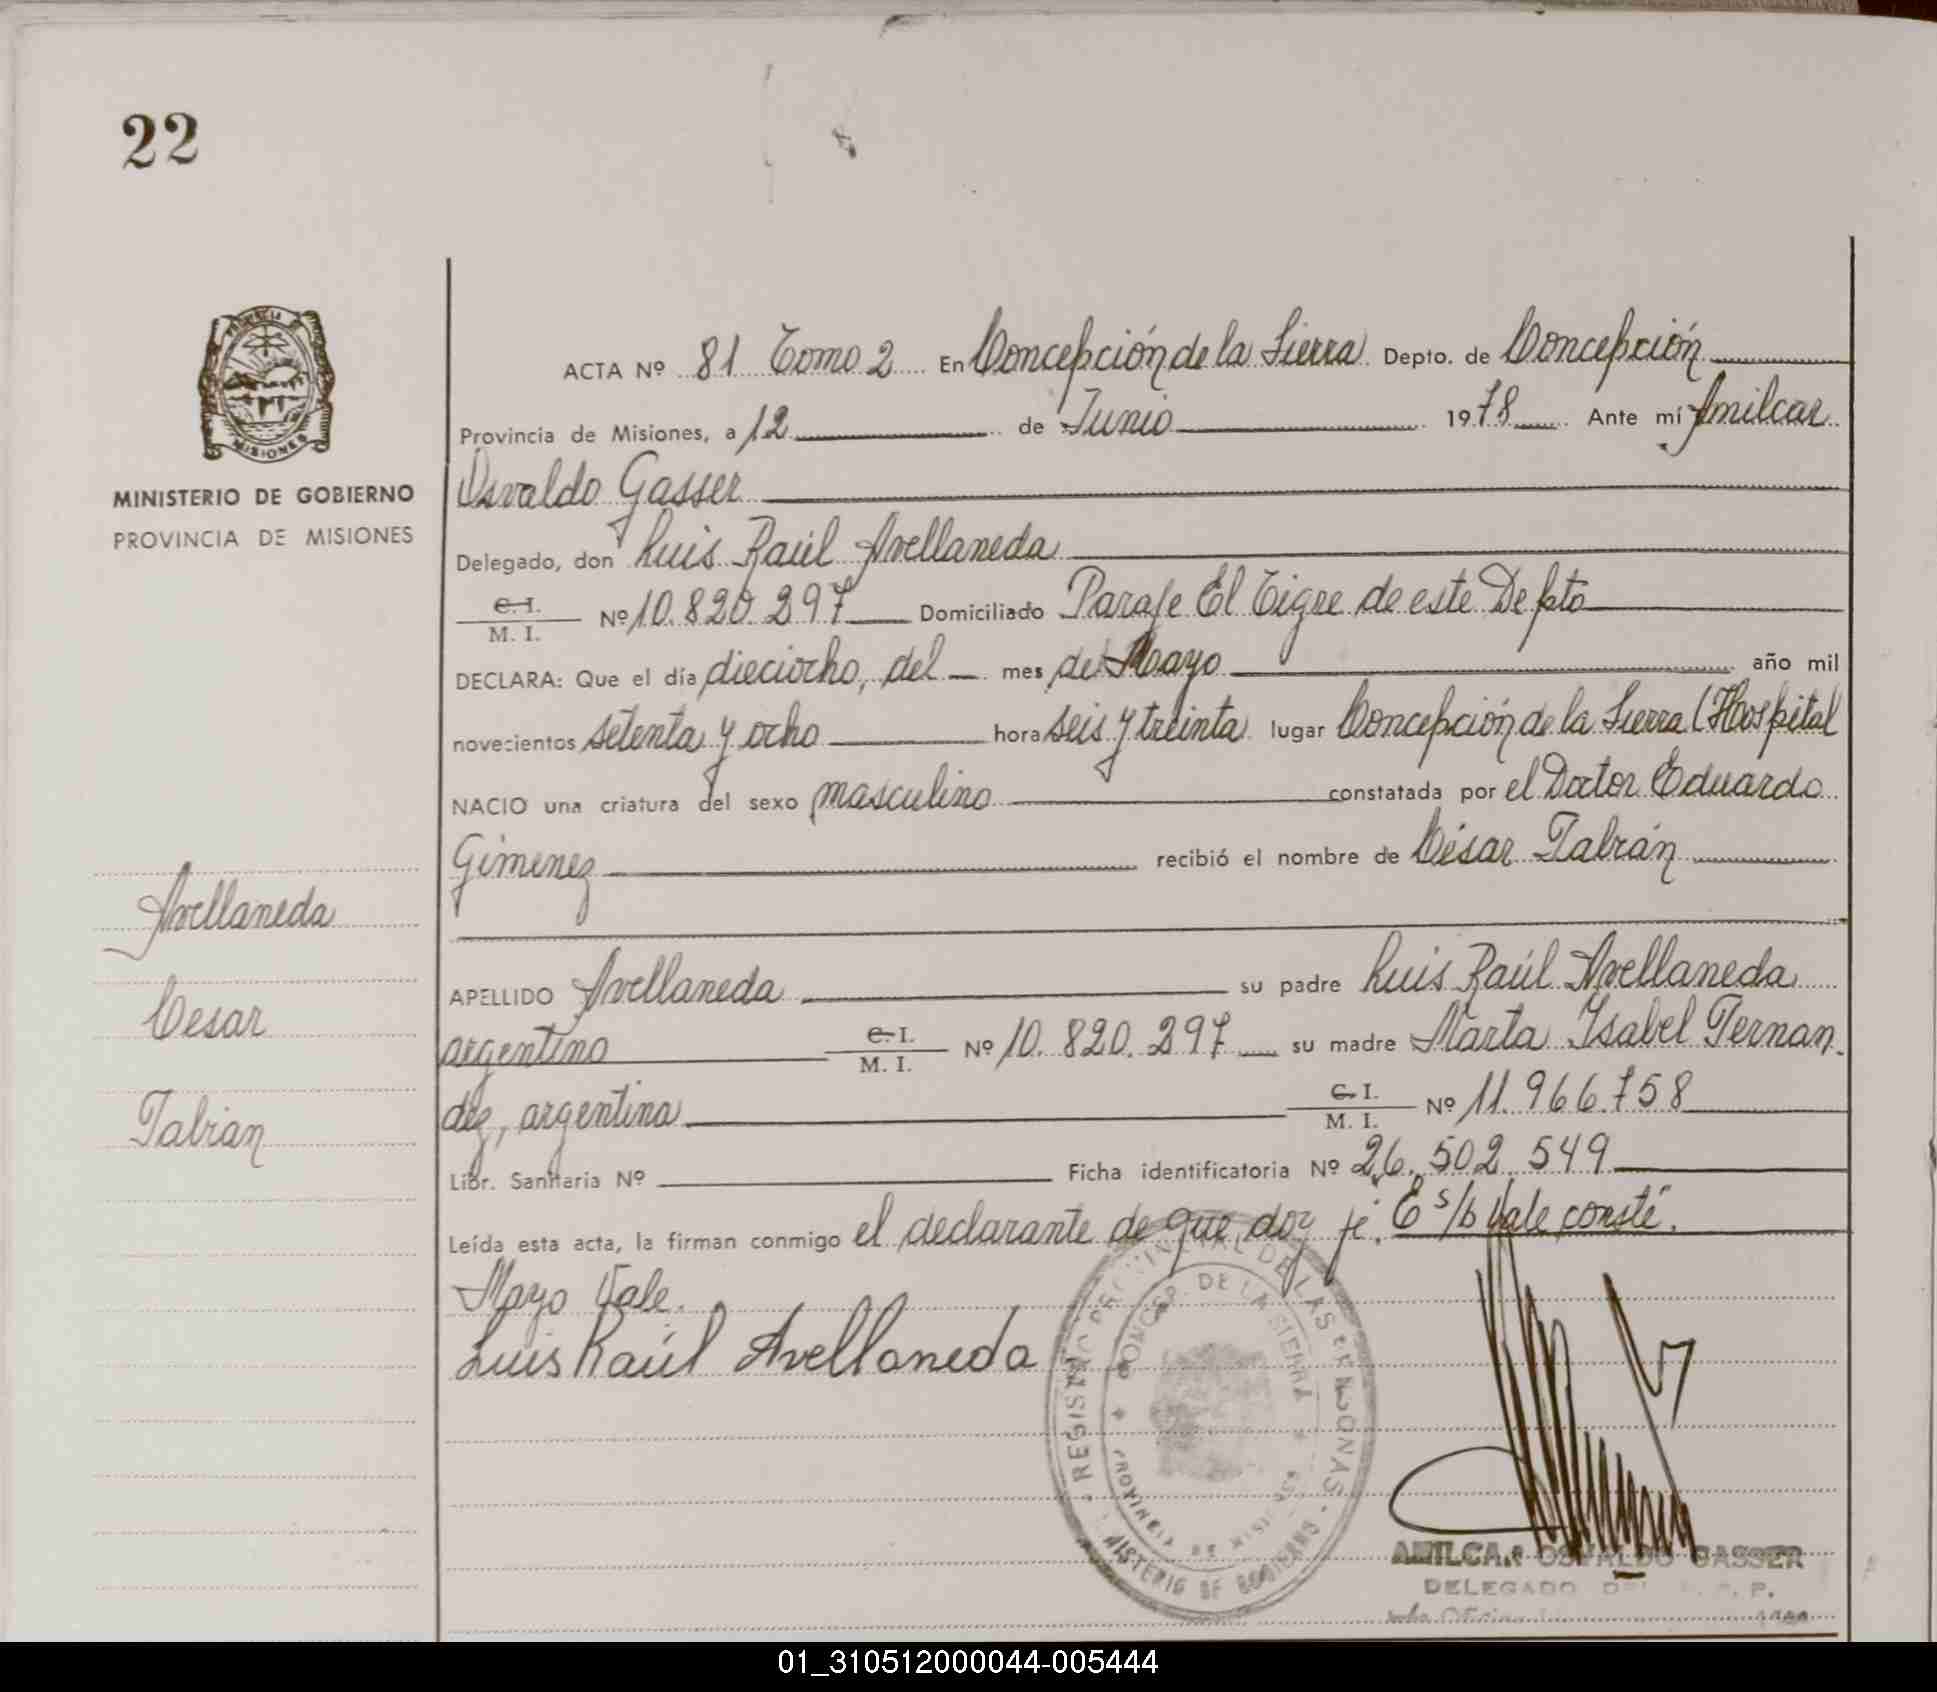 22
PROVINCIA DE
MISIONES
MINISTERIO DE GOBIERNO
PROVINCIA DE MISIONES
ACTA Nº 81 Tomo 2 En Concepción de la Sierra Depto. de Concepción
Provincia de Misiones, a 12 de Junio 1978 Ante mí Amilcar
Osvaldo Gasser
Delegado, don Luis Raúl Avellaneda
C. I.
M. I. Nº 10.820.297 Domiciliado Paraje El Tigre de este Depto
DECLARA: Que el día dieciocho, del mes de Mayo año mil
novecientos setenta y ocho hora seis y treinta lugar Concepción de la Sierra (Hospital
NACIO una criatura del sexo masculino constatada por el Doctor Eduardo
Gimenez recibió el nombre de César Fabián
Avellaneda
Cesar
Fabian
APELLIDO Avellaneda su padre Luis Raúl Avellaneda
argentino C. I.
M. I. Nº 10.820.297 su madre Marta Isabel Fernan
dez, argentina C. I.
M. I. Nº 11.966.758
Libr. Sanitaria Nº Ficha identificatoria Nº 26.502.549
Leída esta acta, la firman conmigo el declarante de que doy fé. E s/b Vale conste.
Mayo Vale.
Luis Raúl Avellaneda
REGISTRO PROVINCIAL DE LAS PERSONAS
CONCEP. DE LA SIERRA
PROVINCIA DE MISIONES
MINISTERIO DE GOBIERNO
AMILCAR OSVALDO GASSER
DELEGADO DEL R. P. P.
01_310512000044-005444